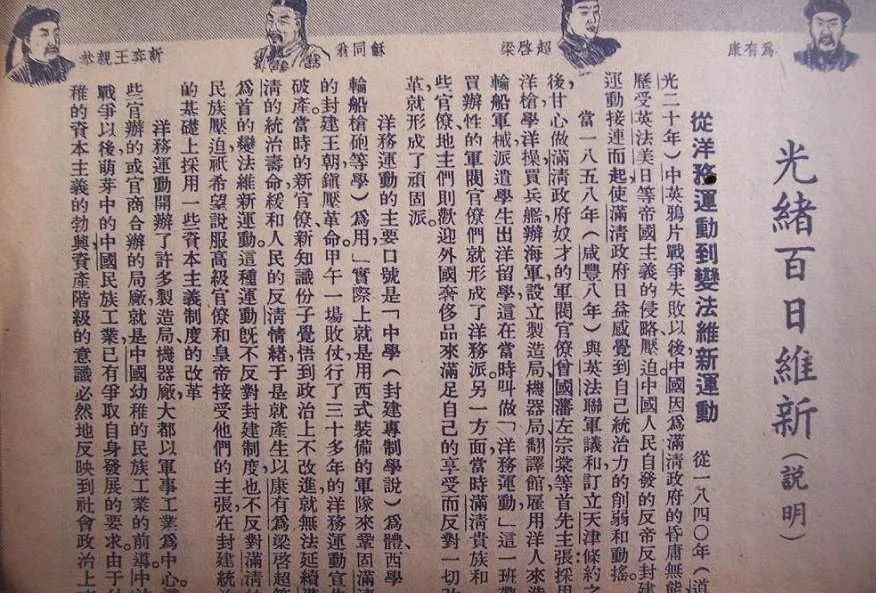 康有爲
梁啓超
翁同龢
恭親王奕訢
光緒百日維新(説明)
從洋務運動到變法維新運動　從一八四〇年(道
光二十年)中英鴉片戰爭失敗以後,中國因爲滿清政府的昏庸無能,
歷受英法美日等帝國主義的侵略壓迫,中國人民自發的反帝反封建
運動接連而起,使滿清政府日益感覺到自己統治力的削弱和動搖。
當一八五八年(咸豐八年)與英法聯軍議和訂立天津條約之
後,甘心做滿清政府奴才的軍閥官僚曾國藩左宗棠等首先主張採用
洋槍,學洋操,買兵艦,辦海軍,設立製造局,機器局,翻譯館,雇用洋人來造
輪船軍械,派遣學生出洋留學,這在當時叫做「洋務運動」,這一班帶
買辦性的軍閥官僚們就形成了洋務派。另一方面,當時滿清貴族和
些官僚、地主們則歡迎外國奢侈品來滿足自己的享受而反對一切改
革,就形成了頑固派。
洋務運動的主要口號是「中學(封建專制學説)爲體,西學
輪船槍砲等學)爲用」,實際上就是用西式裝備的軍隊來鞏固滿清
的封建王朝,鎮壓革命。甲午一場敗仗,行了三十多年的洋務運動宣告
破產。當時的新官僚、新知識份子覺悟到政治上不改進,就無法延續滿
清的統治壽命,緩和人民的反清情緒,于是就產生以康有爲梁啓超等
爲首的變法維新運動。這種運動既不反對封建制度,也不反對滿清的
民族壓迫,祇希望說服高級官僚和皇帝接受他們的主張,在封建統治
的基礎上採用一些資本主義制度的改革。
洋務運動開辦了許多製造局機器廠,大都以軍事工業爲中心,這
些官辦的或官商合辦的局廠,就是中國幼稚的民族工業的前導。中法
戰爭以後,萌芽中的中國民族工業,已有爭取自身發展的要求。由于幼
稚的資本主義的勃興,資產階級的意識必然地反映到社會政治上來